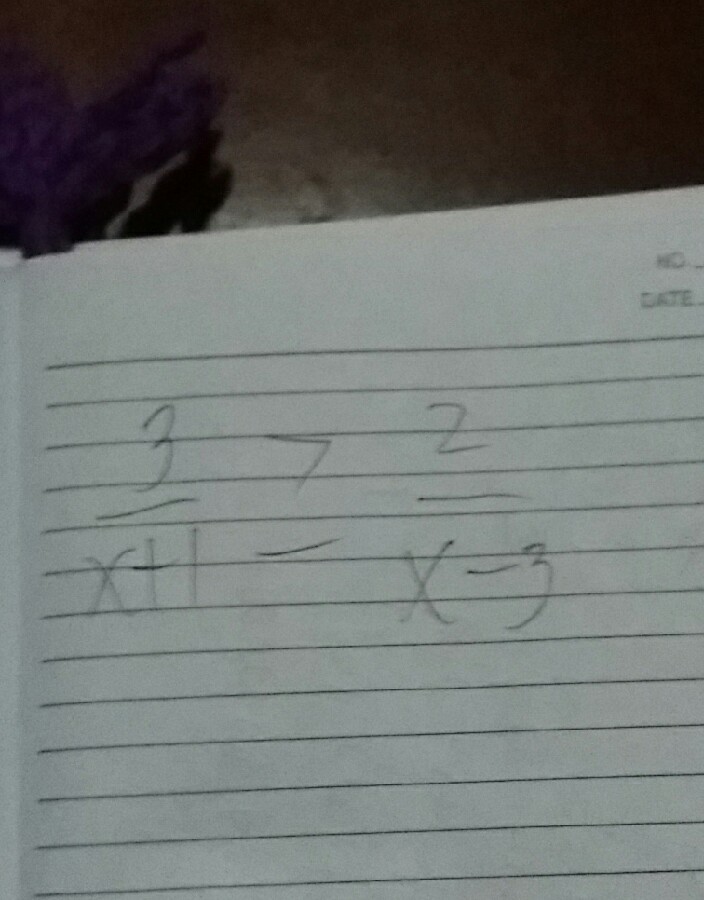 NO.
DATE
3 ≥ 2
x+1 x-3